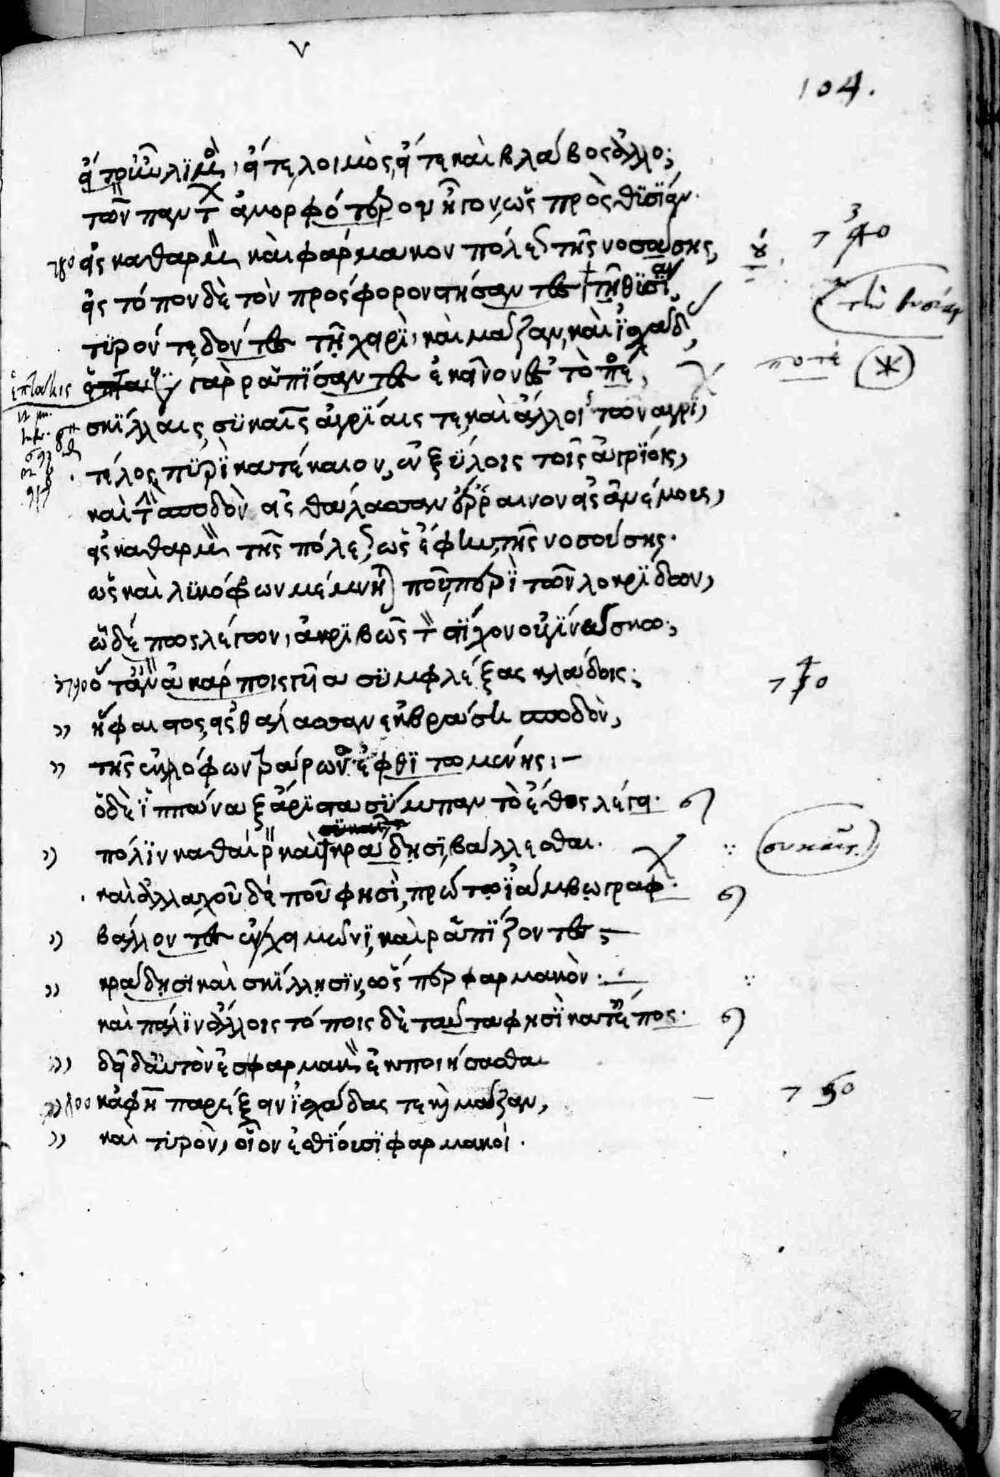 104.
εἴτουν λιμὸς, εἴτε λοιμὸς, εἴτε καὶ βλάβος ἄλλο;
τῶν πάντων ἀμορφότερον ἦγον, ὡς πρὸς θυσίαν·
εἰς καθαρμὸν καὶ φάρμακον πόλεως τῆς νοσούσης,
740
εἰς τόπον δὲ τὸν πρόσφορον στήσαντες τῇ θυσίᾳ
τὴν θυσίαν
τυρόν τε δόντες τῇ χειρὶ, καὶ μάζαν, καὶ ἰσχάδας,
ἑπτάκις
ἑπτάκις γὰρ ῥαπίσαντες ἐκεῖνον εἰς τὸ πέος,
ποτὲ
σκίλλαις, συκαῖς ἀγρίαις τε, καὶ ἄλλοις τῶν ἀγρίων,
τέλος πυρὶ κατέκαιον, ἐν ξύλοις τοῖς ἀγρίοις,
καὶ τὸν σποδὸν εἰς θάλασσαν ἔρραινον εἰς ἀνέμους,
εἰς καθαρμὸν τῆς πόλεως, ὡς ἔφην, τῆς νοσούσης·
ὡς καὶ λυκόφρων μέμνηται που, περὶ τῶν λοκρίδων,
ὧδέ πως λέγων, ἀκριβῶς τὸν στίχον οὐ γινώσκω·,
ὅταν ἀκάρποις γυῖα συμφλέξας κλάδοις;
750
ἥφαιστος, εἰς θάλασσαν ἐκβράσῃ σποδὸν,
τῆς ἐκ λόφων τράρωνος ἐφθιτωμένης:—
ὁ δὲ ἱππώναξ ἄριστα σύμπαν τὸ ἔθος λέγει·
πόλιν καθαίρειν καὶ κράδῃσι βάλλεσθαι·
συκαῖς
καὶ ἀλλαχοῦ δέ που φησὶ, πρώτῳ ἰάμβῳ γράφων·
βάλλοντες ἐν χειμῶνι, καὶ ῥαπίζοντες
κράδῃσι καὶ σκίλλῃσιν, ὥσπερ φαρμακὸν·
καὶ πάλιν ἄλλοις τόποις δὲ ταῦτα φησὶ κατ' ἔπος·
δεῖ δ' αὐτὸν ἐς φαρμακὸν ἐκποιήσασθαι
750
κἀφῇ παρέξειν ἰσχάδας τε καὶ μάζαν,
καὶ τυρὸν, οἷον ἐσθίουσι φαρμακοί·